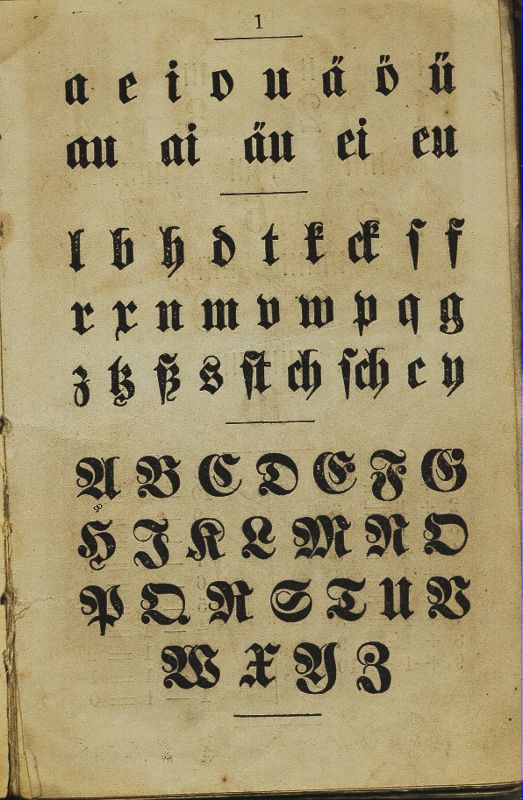 1
a e i o u ä ö ü
au ai äu ei eu
l b h d t k ck ſ f
r x n m v w p q g
z tz ß s ſt ch ſch c y
A B C D E F G
H J K L M N O
P Q R S T U V
W X Y Z